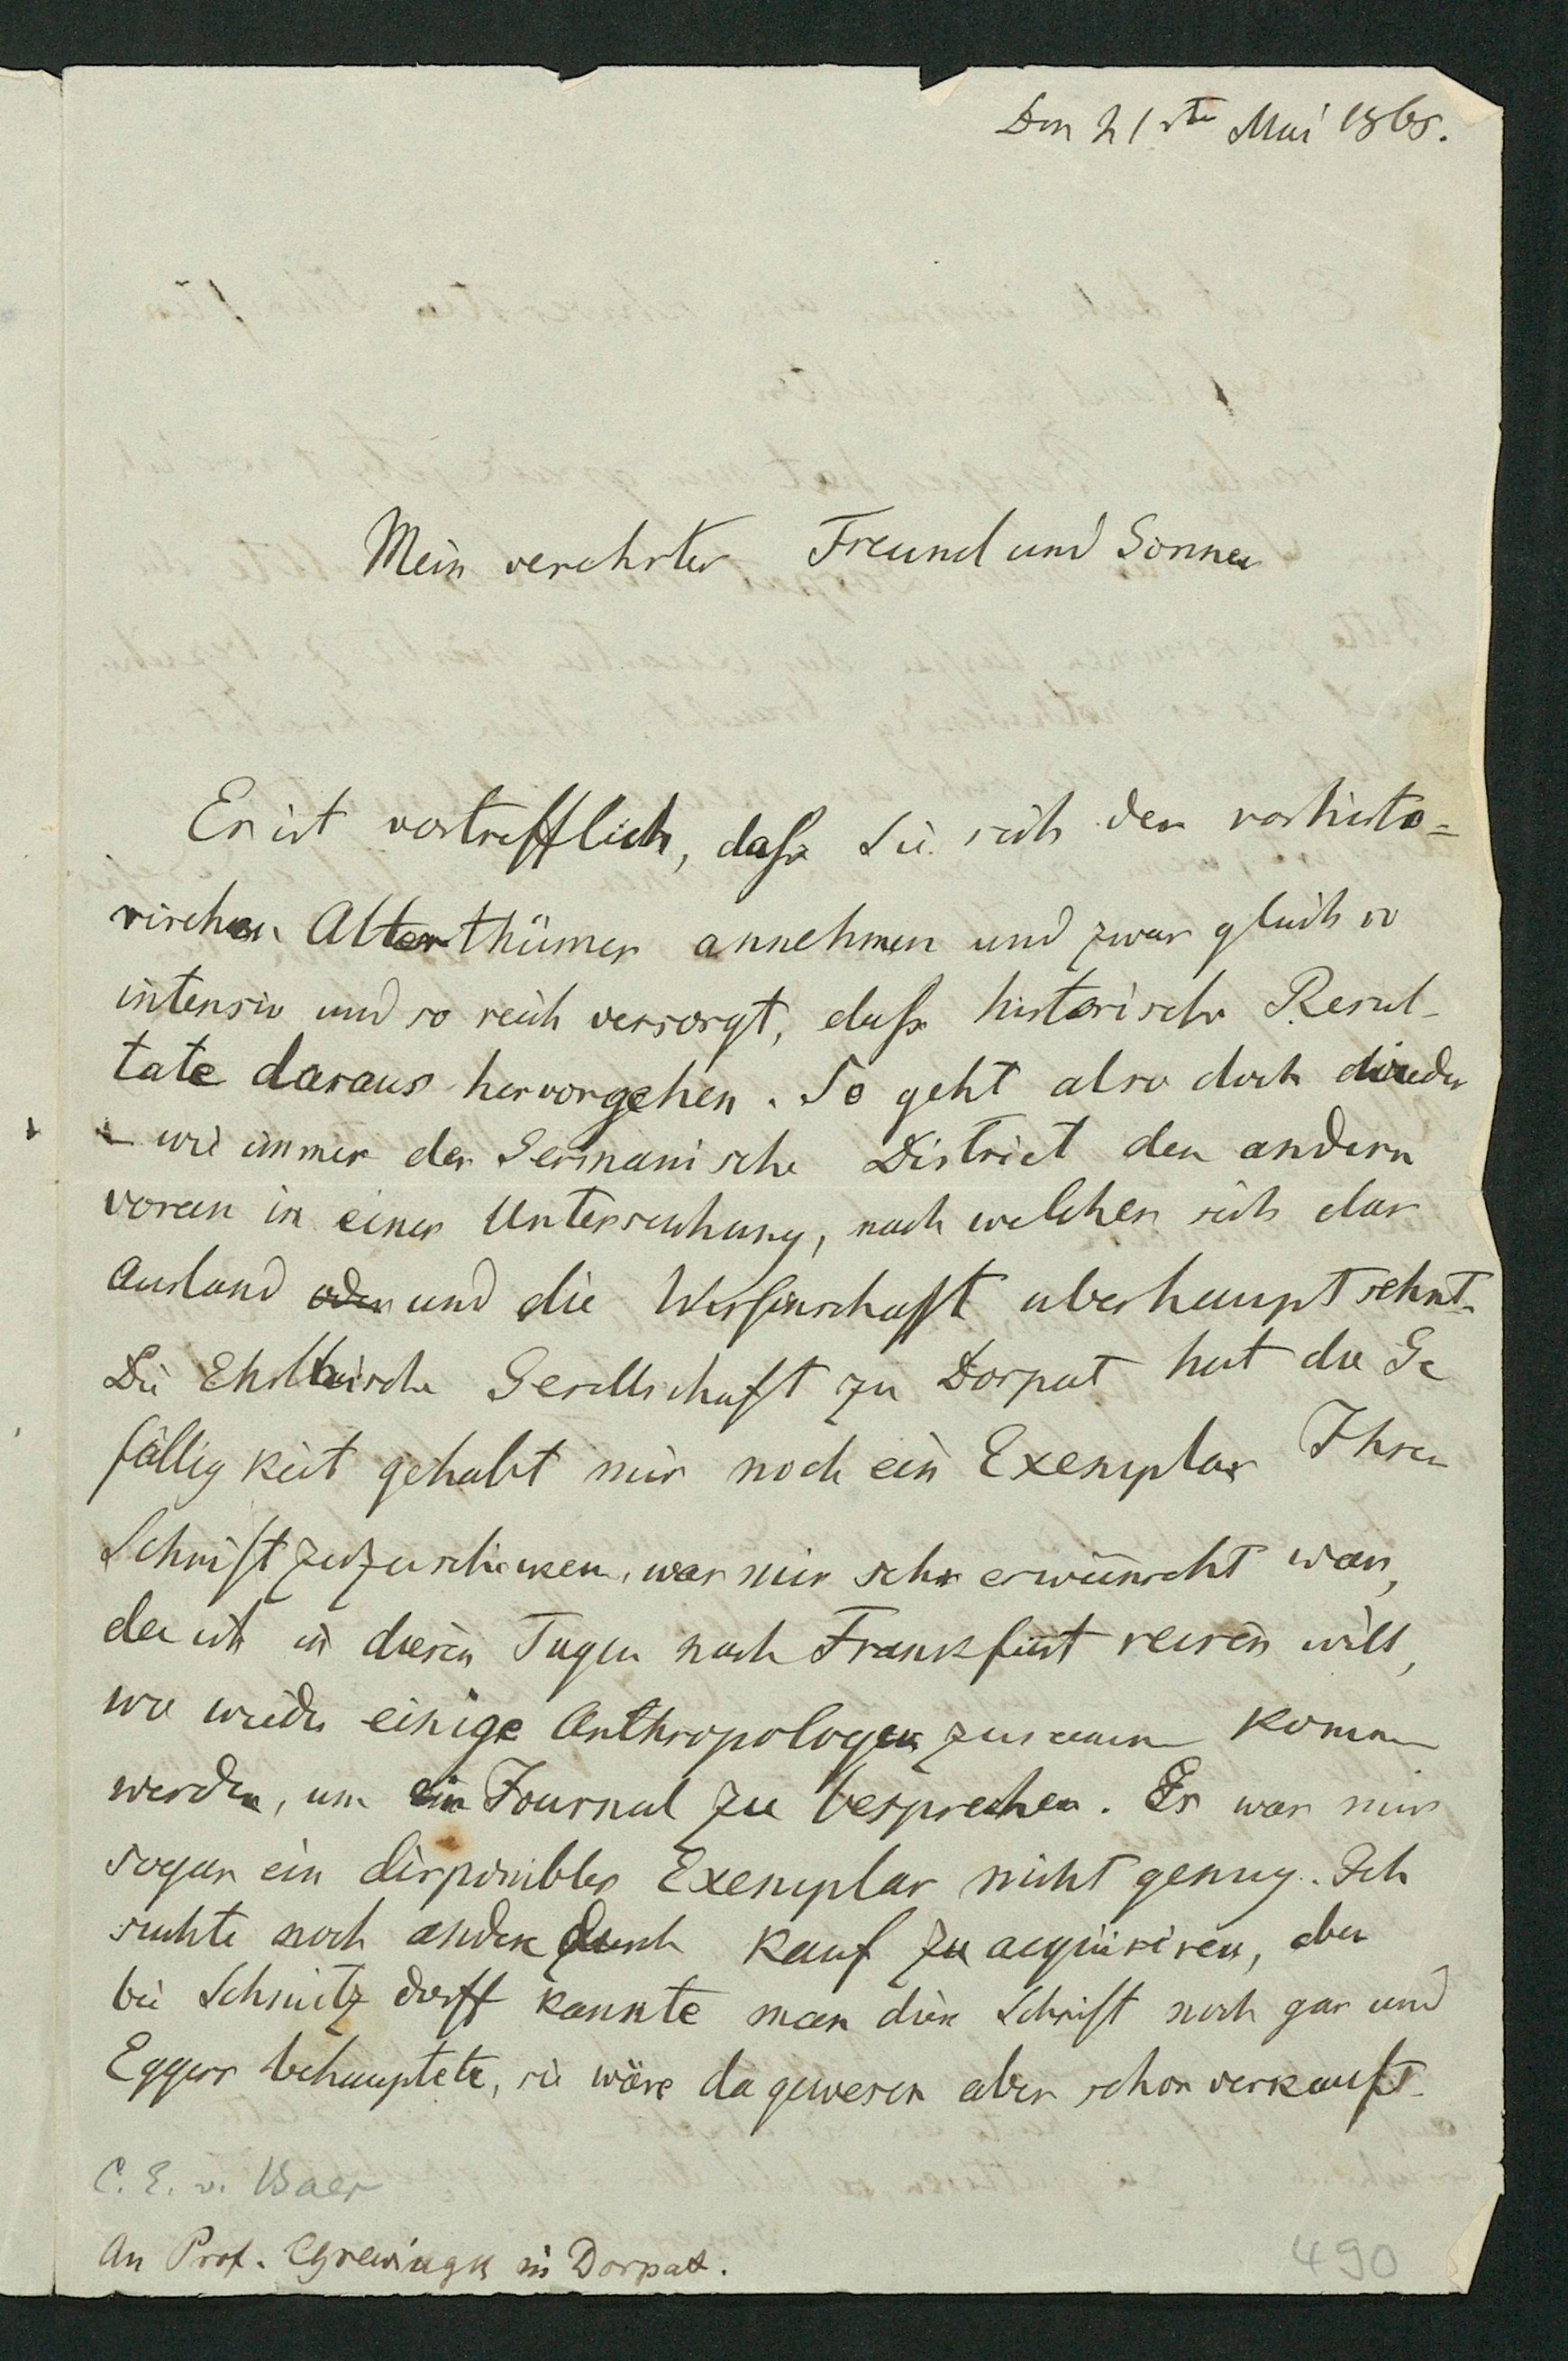 Den 21ste Mai 1865.
Mein verehrter Freund und Gönner
Es ist vortrefflich, dass Sie sich der vorhisto-
rischen Alterthümer annehmen und zwar gleich so
intensiv und so reich versorgt, dass historische Resul-
tate daraus hervorgehen. So geht also doch wieder
– wie immer der Germanische District den andern
voran in einer Untersuchung, nach welcher sich das
Ausland und die Wissenschaft uberhaupt sehnt.
Die Ehstnische Gesellschaft zu Dorpat hat die Ge
fälligkeit gehabt mir noch ein Exemplar Ihrer
Schrift zuzuschicken, was mir sehr erwünscht war,
da ich in diesen Tagen nach Frankfurt reisen will,
wo wieder einige Anthropologen zusammen kommen
werden, um ein Journal zu besprechen. Es war mir
sogar ein disponibles Exemplar nicht genug. Ich
suchte noch andere durch Kauf zu acquiriren, aber
bei Schmitzdorff kannte man die Schrift noch gar und
Eggers behauptete, sie wäre da gewesen aber schon verkauft.
C. E. v. Baer
An Prof. Grewingk in Dorpat.
490